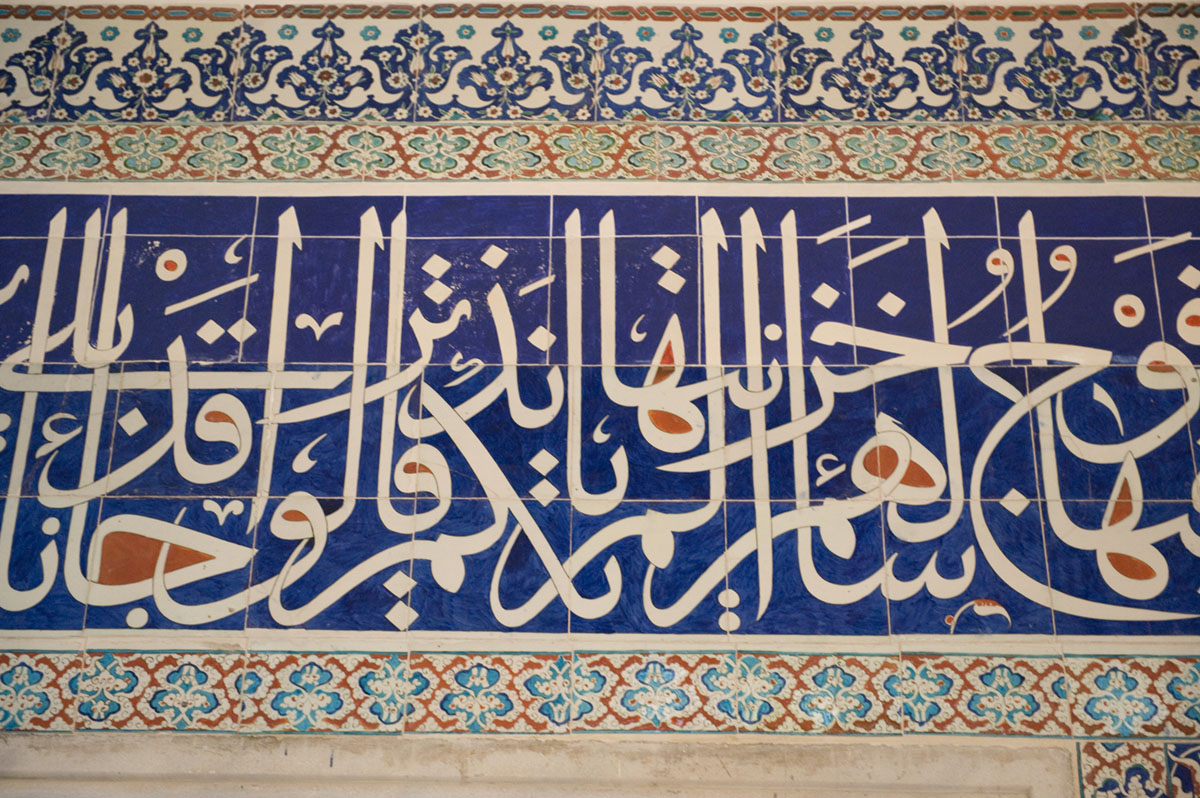 فيها فوج سألهم خزنتها ألم يأتكم نذير قالوا بلى قد جاءنا